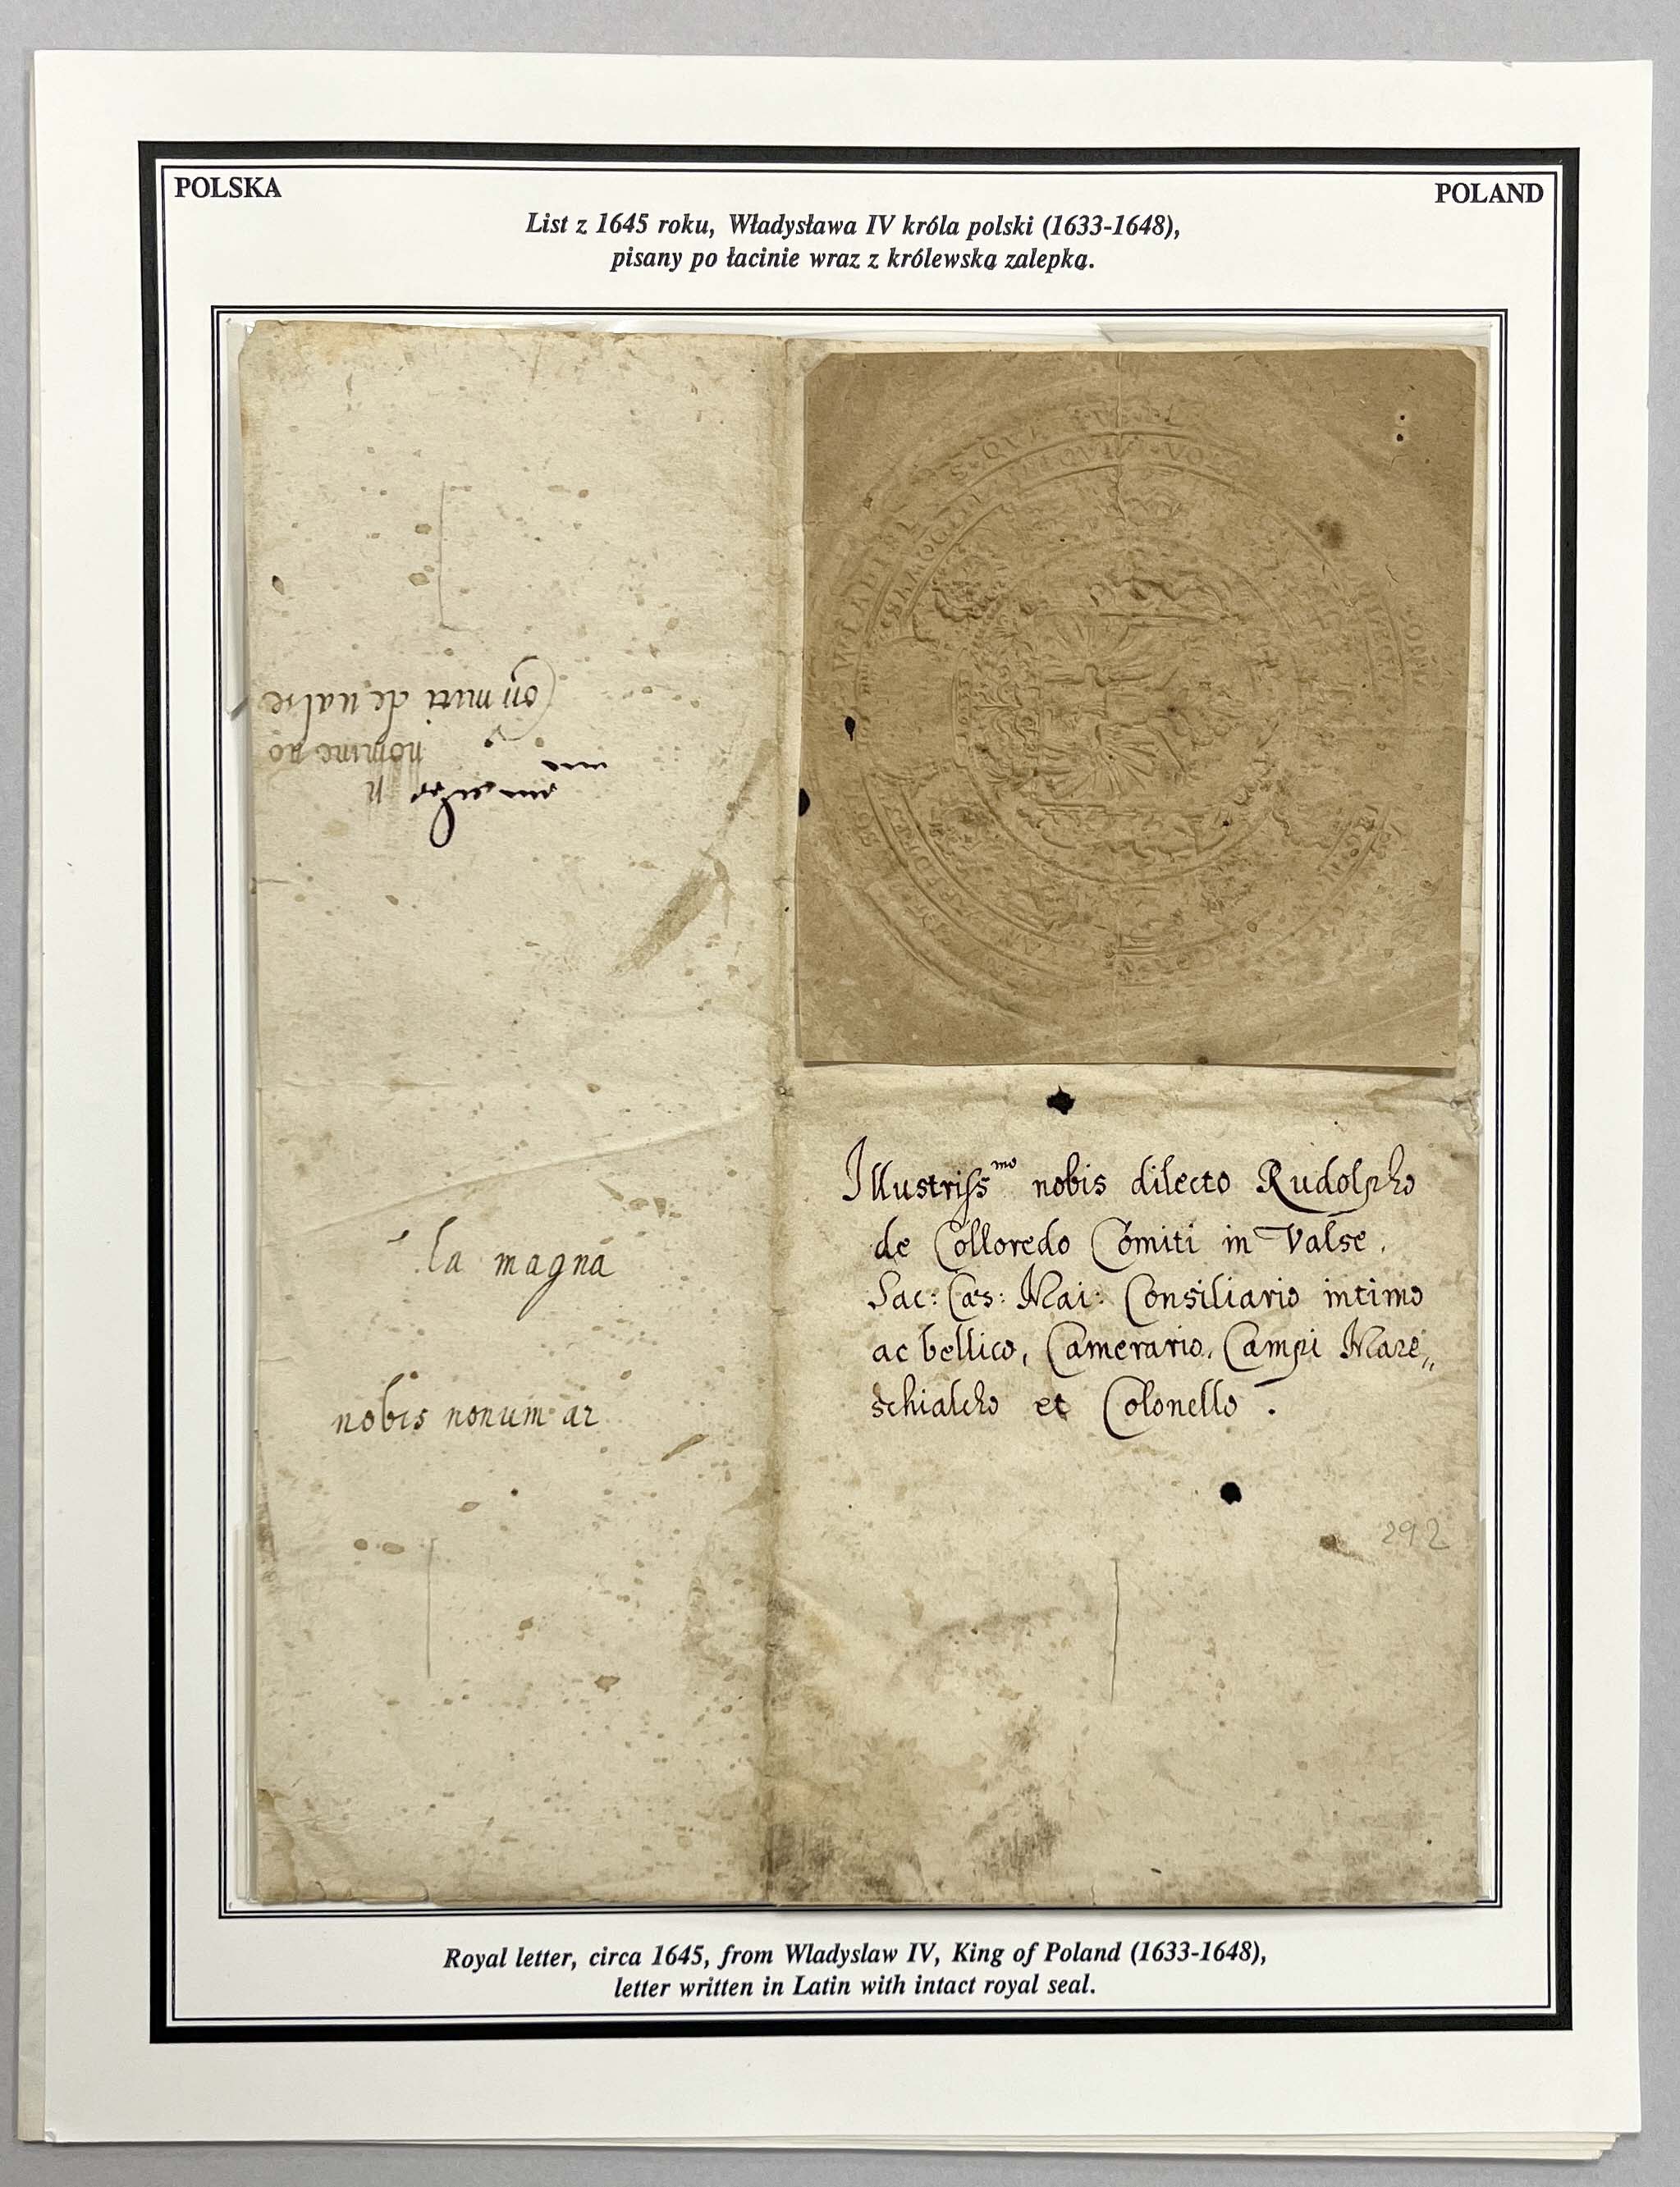 POLSKA
POLAND
List z 1645 roku, Władysława IV króla polski (1633-1648),
pisany po łacinie wraz z królewską zalepką.
Commiti de ualse
nomine ao
la magna
nobis nonum ar
Illustriss^mo nobis dilecto Rudolpho
de Colloredo Comiti in Valse.
Sac: Cæs: Mai: Consiliario intimo
ac bellico, Camerario, Campi Mare„
schialcho et Colonello.
292
Royal letter, circa 1645, from Wladyslaw IV, King of Poland (1633-1648),
letter written in Latin with intact royal seal.